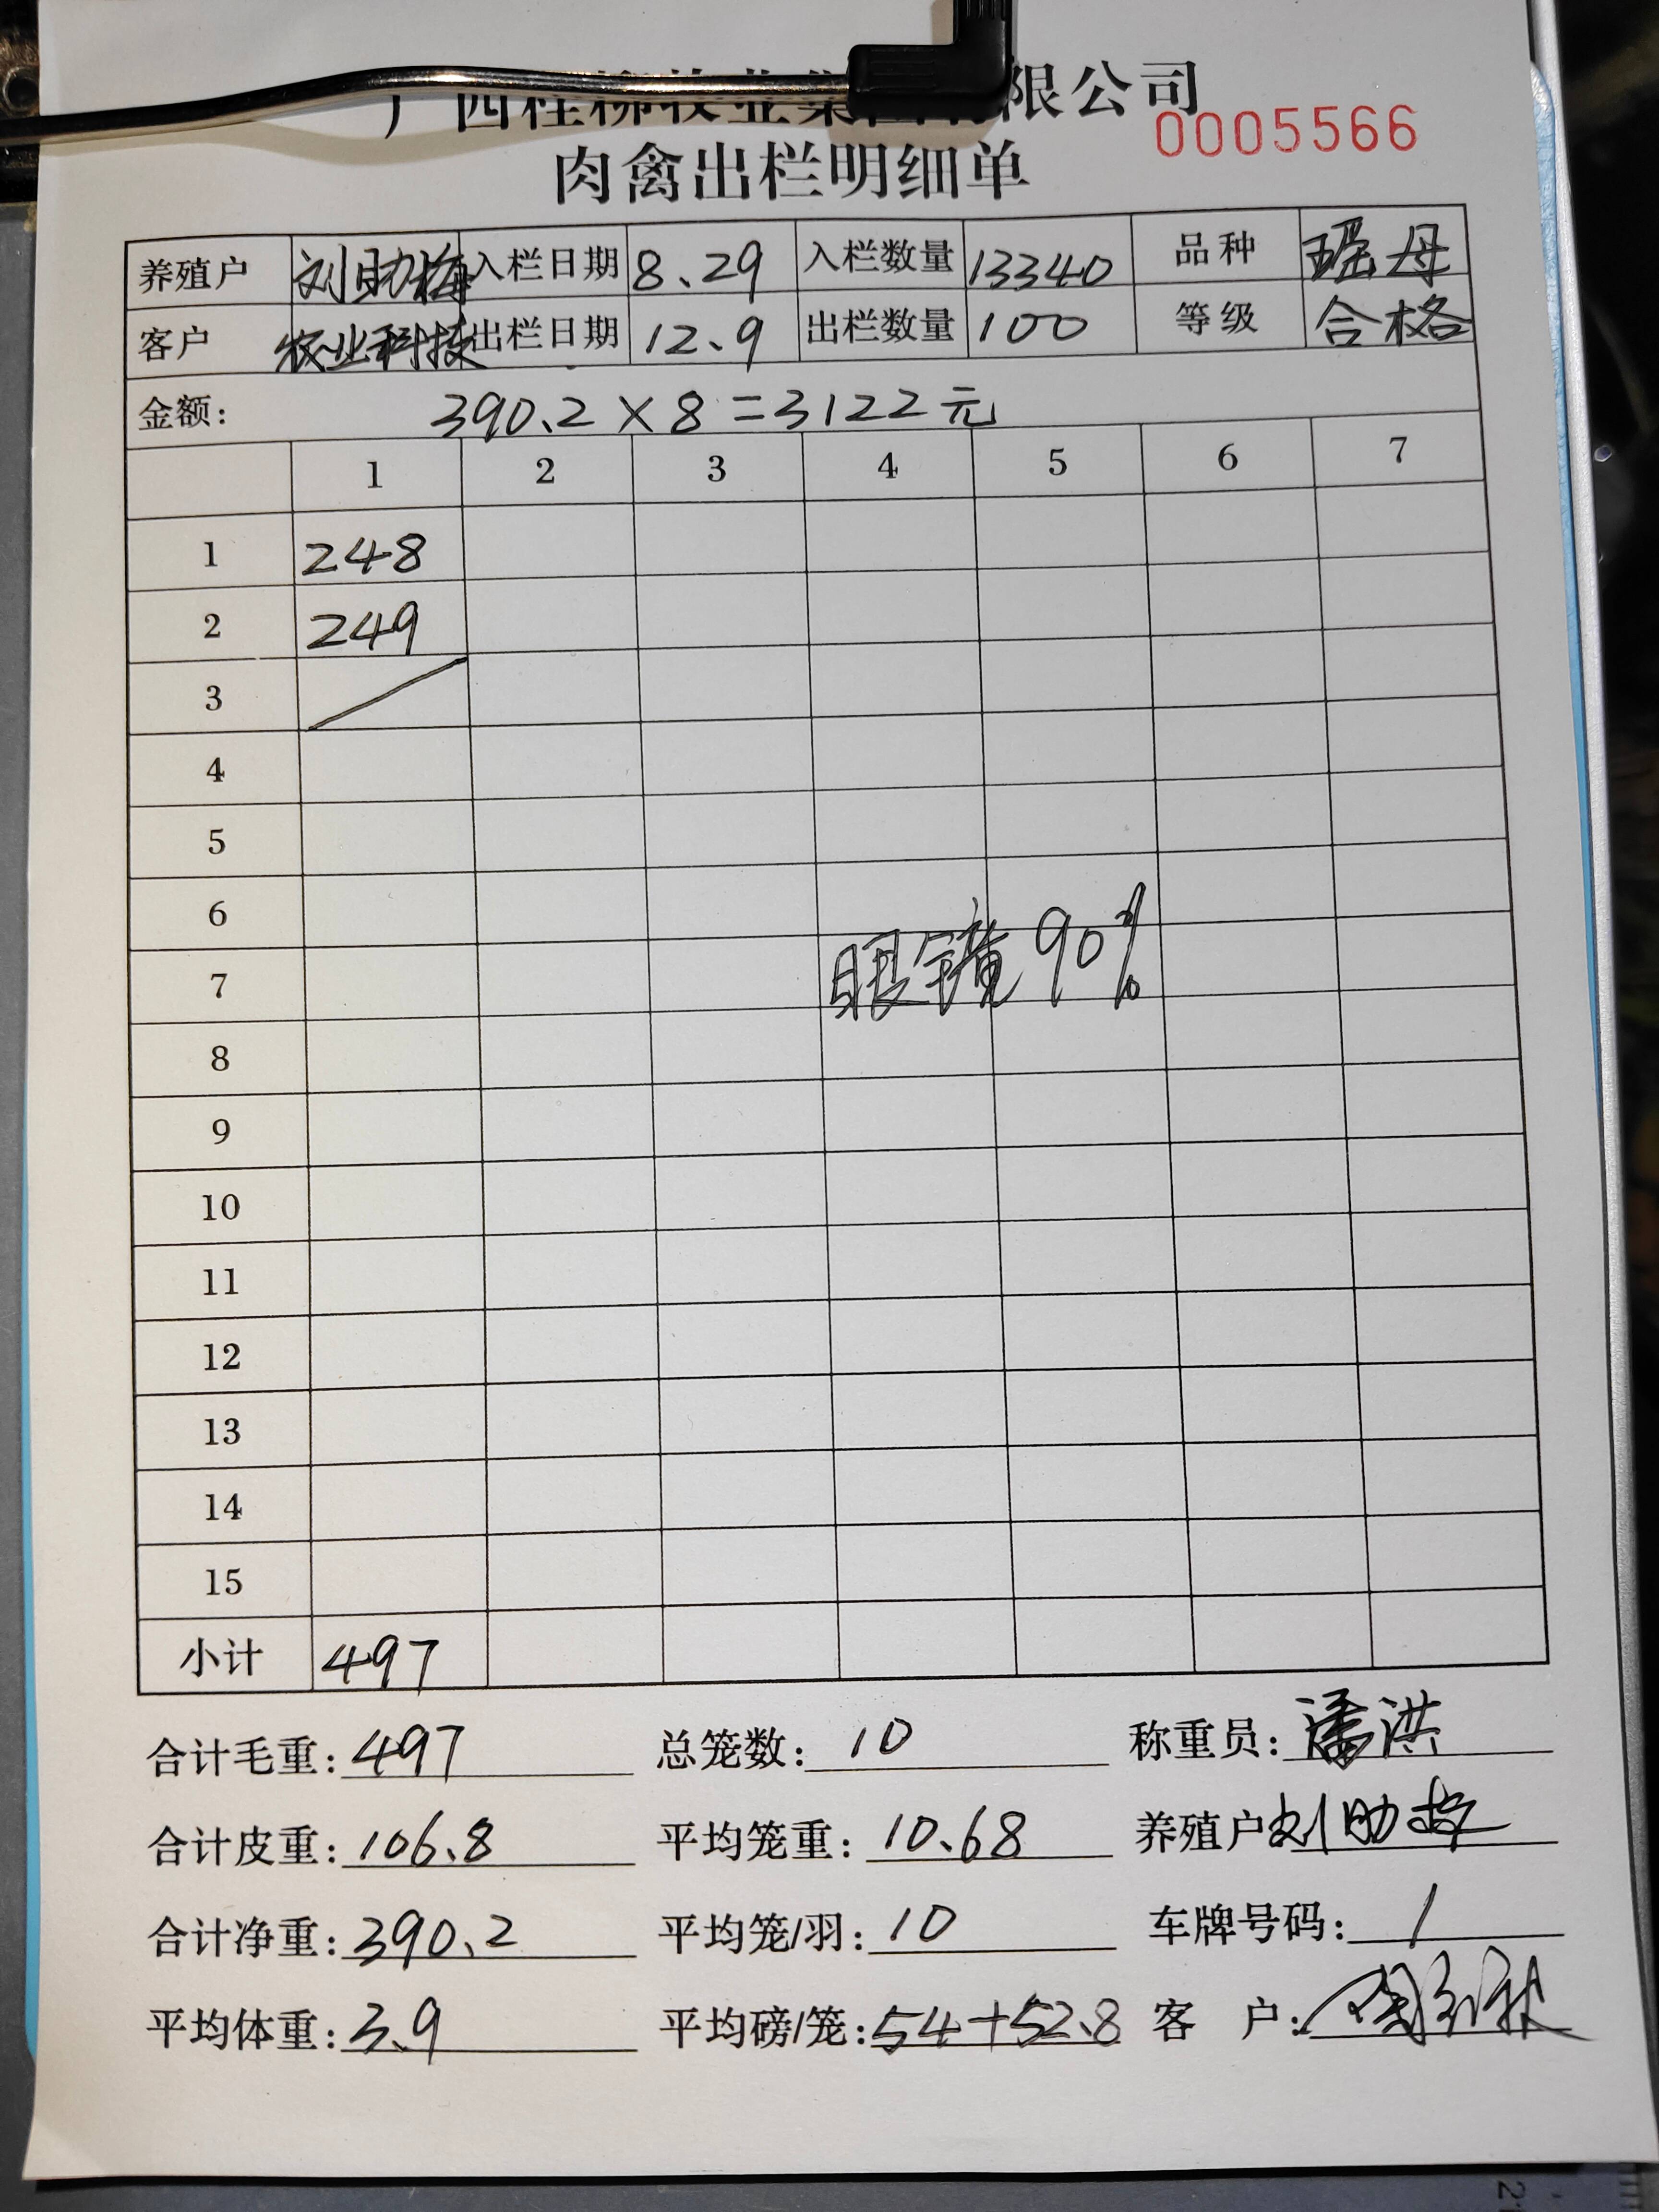 广西桂柳牧业集团有限公司
0005566
肉禽出栏明细单
养殖户 刘助梅 入栏日期 8.29 入栏数量 13340 品种 瑶母
客户 农业科技 出栏日期 12.9 出栏数量 100 等级 合格
金额: 390.2×8=3122元
1 2 3 4 5 6 7
1 248
2 249
3
4
5
6
眼镜90%
7
8
9
10
11
12
13
14
15
小计 497
合计毛重: 497 总笼数: 10 称重员: 潘洪
合计皮重: 106.8 平均笼重: 10.68 养殖户 刘助梅
合计净重: 390.2 平均笼/羽: 10 车牌号码: /
平均体重: 3.9 平均磅/笼: 54+52.8 客 户: